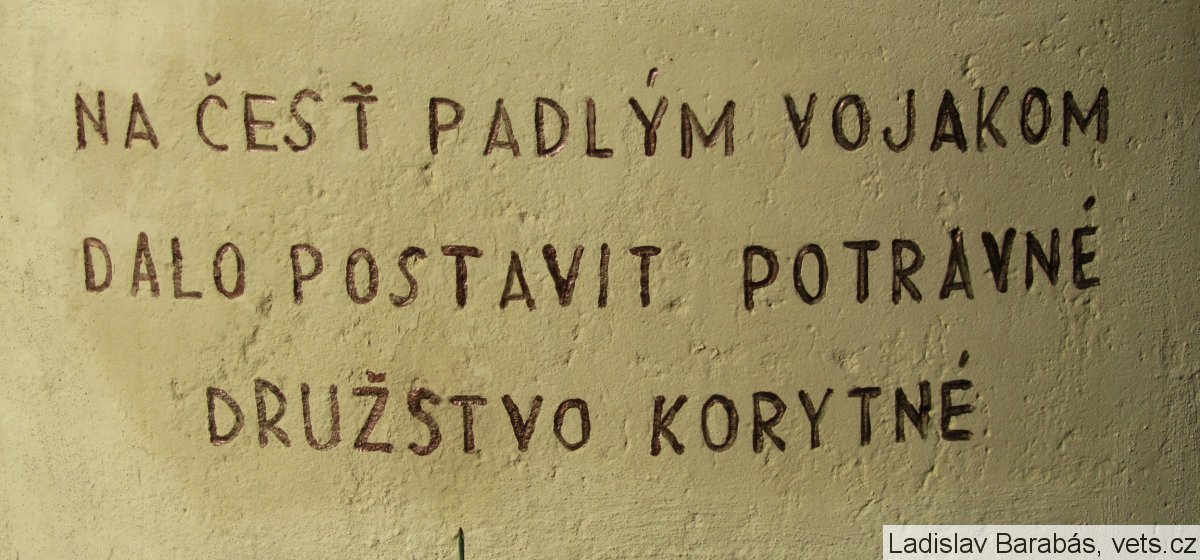 NA ČESŤ PADLÝM VOJAKOM
DALO POSTAVIT POTRAVNÉ
DRUŽSTVO KORYTNÉ
Ladislav Barabás, vets.cz